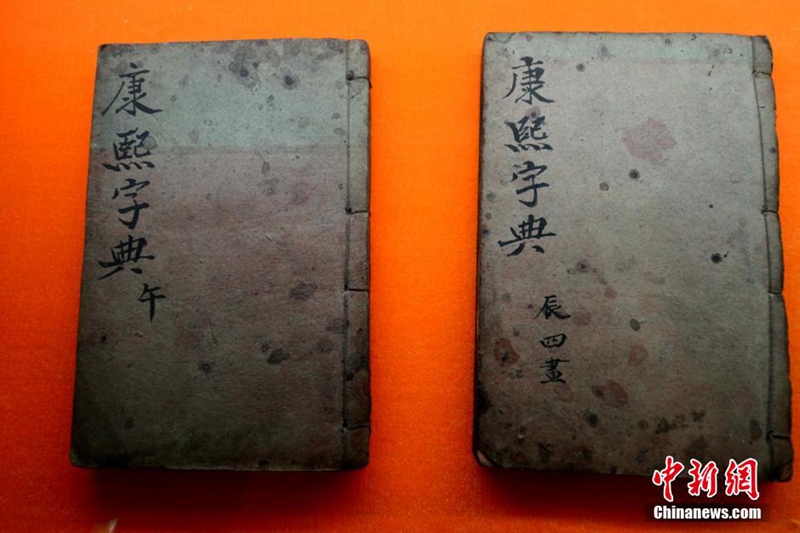 康熙字典
午
康熙字典
辰四畫
中新網
Chinanews.com